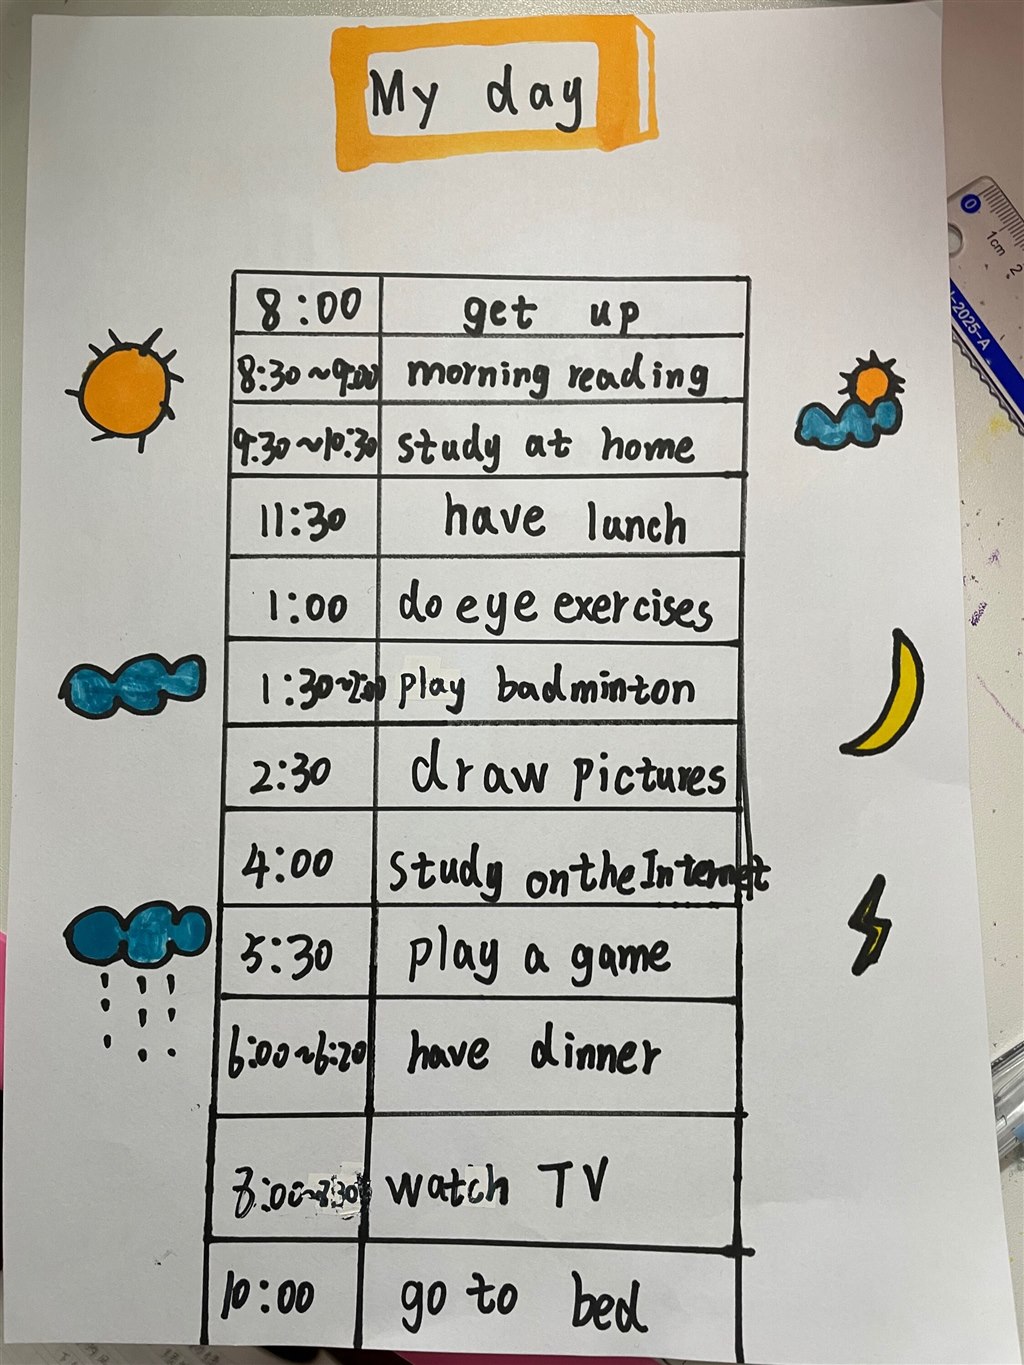 My day
8:00 get up
8:30~9:00 morning reading
9:30~10:30 study at home
11:30 have lunch
1:00 do eye exercises
1:30~2:00 play badminton
2:30 draw pictures
4:00 study on the Internet
5:30 play a game
6:00~6:20 have dinner
8:00~8:30 watch TV
10:00 go to bed
0 1cm 2
-2025-A